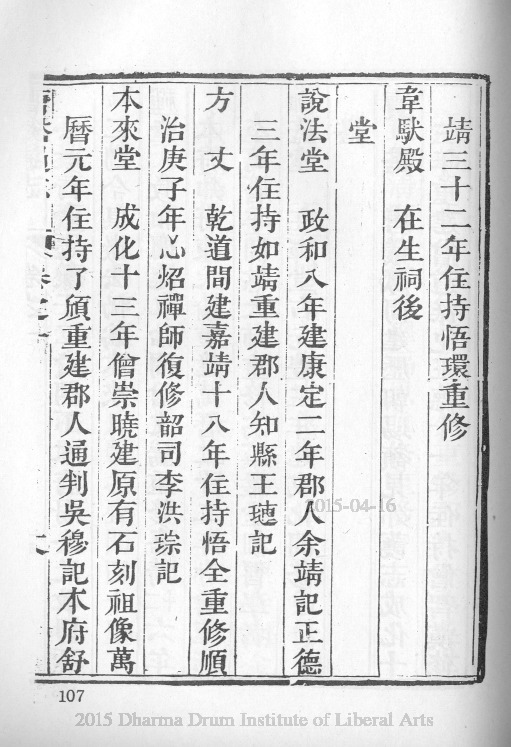 靖三十二年住持悟環重修
韋馱殿　在生祠後
堂
說法堂　政和八年建康定二年郡人余靖記正德
三年住持如靖重建郡人知縣王璁記
方　丈　乾道間建嘉靖十八年住持悟全重修順
治庚子年心炤禪師復修韶司李洪琮記
本來堂　成化十三年僧崇曉建原有石刻祖像萬
曆元年住持了頎重建郡人通判吳穆記本府舒
107
2015-04-16
2015 Dharma Drum Institute of Liberal Arts